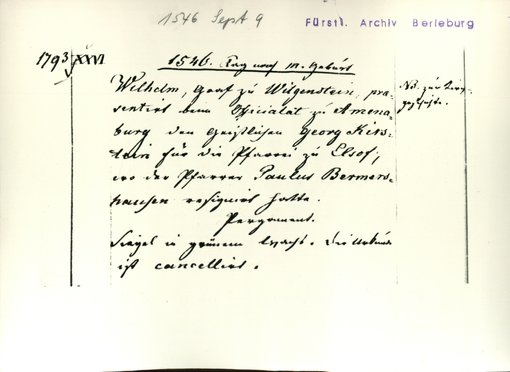 1546 Sept 9
Fürstl. Archiv Berleburg
1793 XXVI
1546. Tag nach M. Geburt
Wilhelm, Graf zu Witgenstein, prä-
sentirt beim Officialat zu Amöne-
burg den Geistlichen Georg Kirs-
tein für die Pfarrei zu Elsof,
wo der Pfarrer Paulus Bermers-
hausen resignirt hatte.
Pergament.
Siegel in grünem Wachs. Die Urkunde
ist cancellirt.
NB. zur